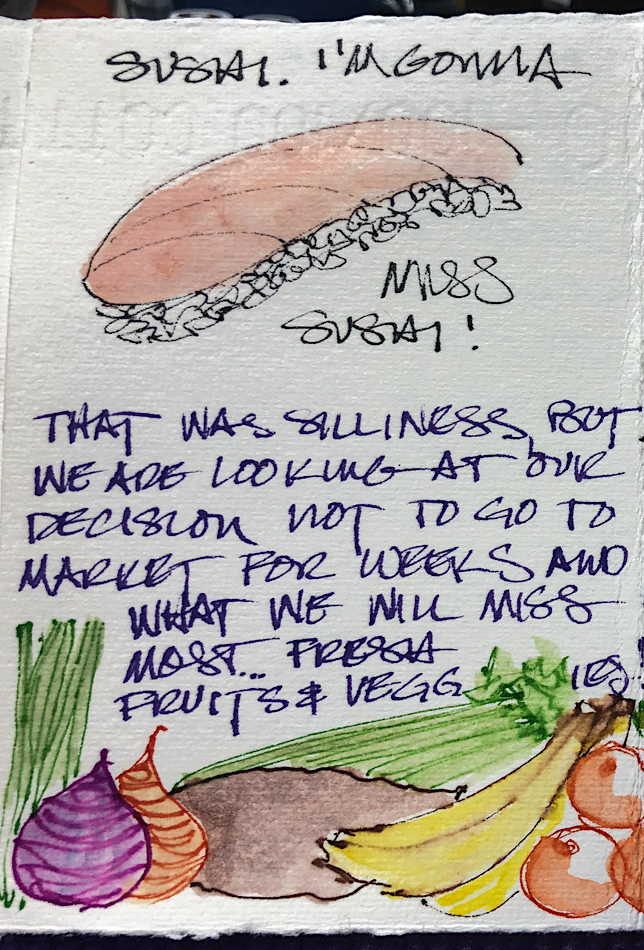 SUSHI. I'M GONNA
MISS
SUSHI!
THAT WAS SILLINESS, BUT
WE ARE LOOKING AT OUR
DECISION NOT TO GO TO
MARKET FOR WEEKS AND
WHAT WE WILL MISS
MOST... FRESH
FRUITS & VEGG IES